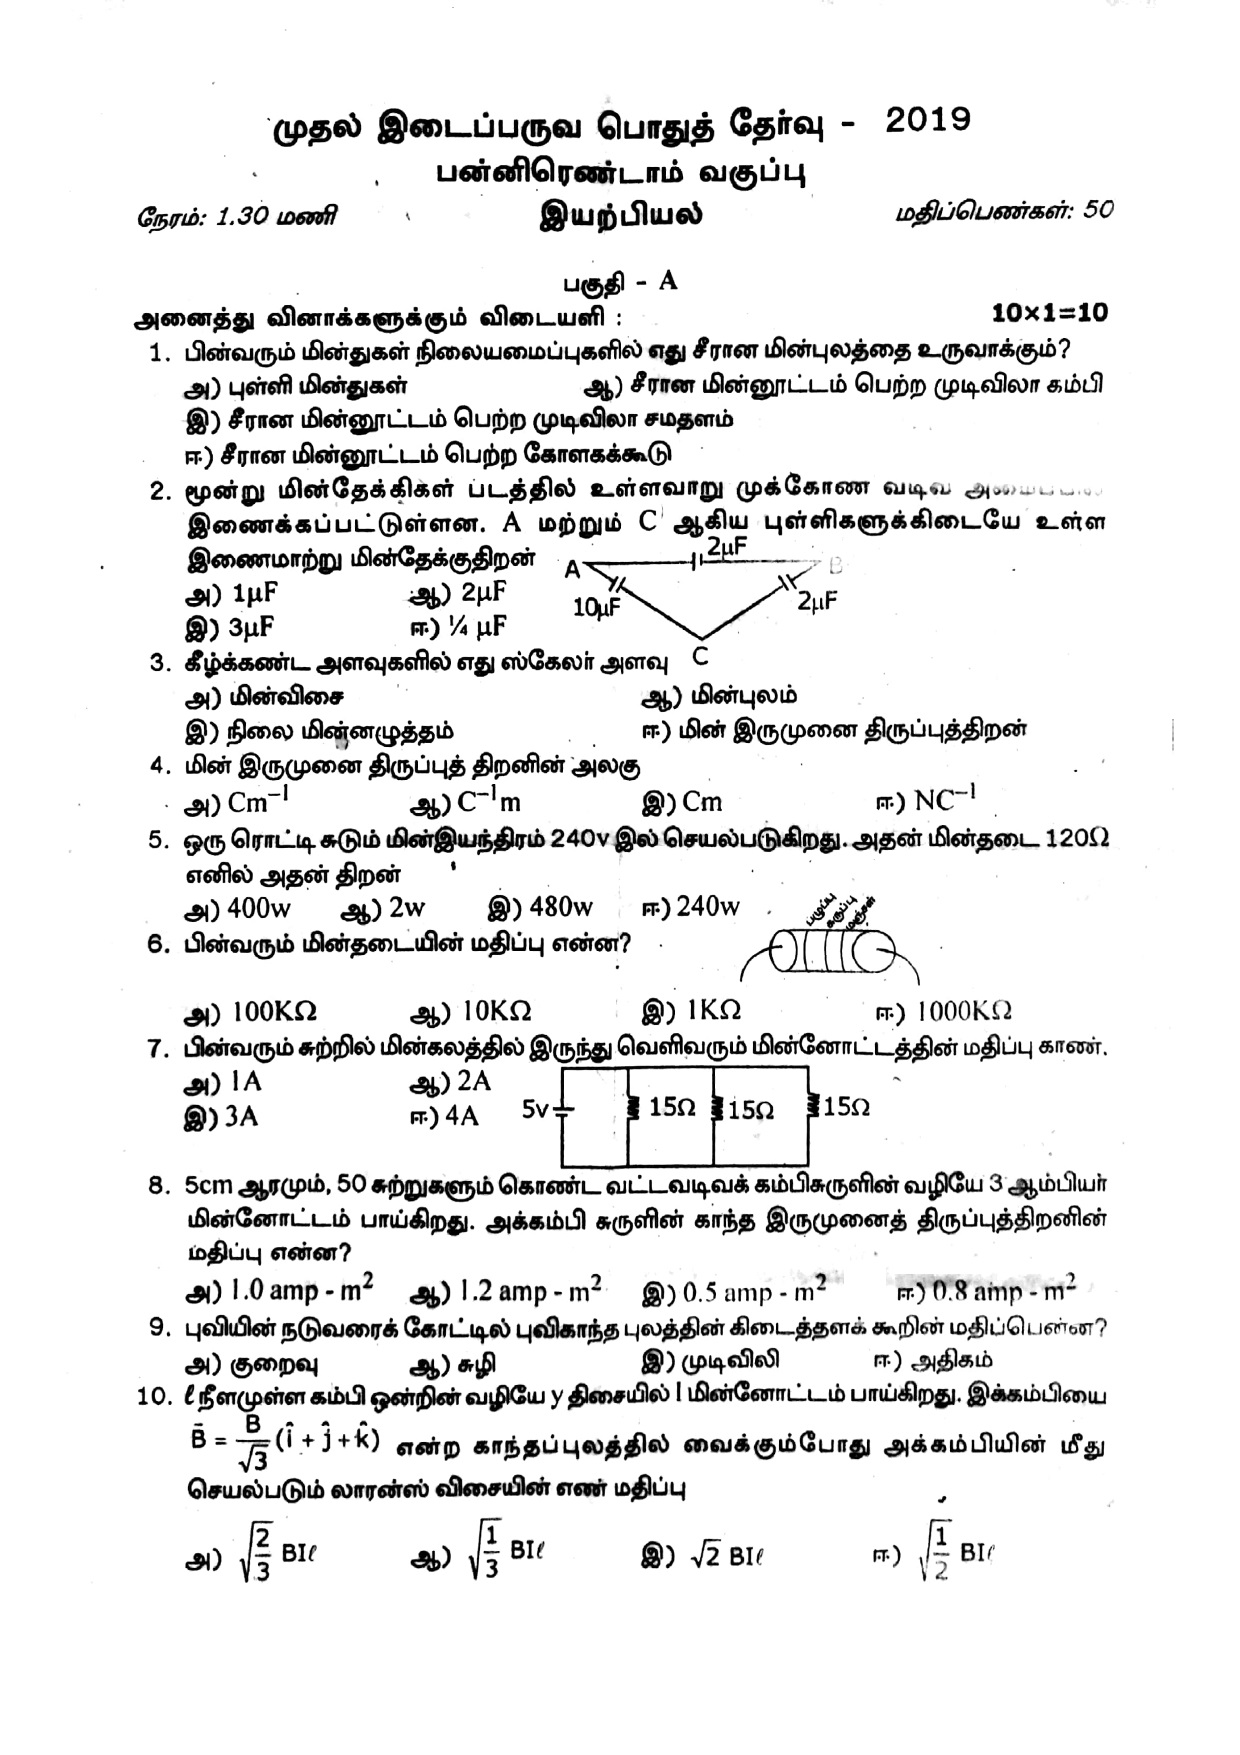 முதல் இடைப்பருவ பொதுத் தேர்வு - 2019
பன்னிரெண்டாம் வகுப்பு
நேரம்: 1.30 மணி இயற்பியல் மதிப்பெண்கள்: 50
பகுதி - A
அனைத்து வினாக்களுக்கும் விடையளி : 10×1=10
1. பின்வரும் மின்துகள் நிலையமைப்புகளில் எது சீரான மின்புலத்தை உருவாக்கும்?
அ) புள்ளி மின்துகள் ஆ) சீரான மின்னூட்டம் பெற்ற முடிவிலா கம்பி
இ) சீரான மின்னூட்டம் பெற்ற முடிவிலா சமதளம்
ஈ) சீரான மின்னூட்டம் பெற்ற கோளகக்கூடு
2. மூன்று மின்தேக்கிகள் படத்தில் உள்ளவாறு முக்கோண வடிவ
இணைக்கப்பட்டுள்ளன. A மற்றும் C ஆகிய புள்ளிகளுக்கிடையே உள்ள
இணைமாற்று மின்தேக்குதிறன்
A 2μF B
அ) 1μF ஆ) 2μF 10μF 2μF
இ) 3μF ஈ) ¼ μF
C
3. கீழ்க்கண்ட அளவுகளில் எது ஸ்கேலர் அளவு
அ) மின்விசை ஆ) மின்புலம்
இ) நிலை மின்னழுத்தம் ஈ) மின் இருமுனை திருப்புத்திறன்
4. மின் இருமுனை திருப்புத் திறனின் அலகு
அ) Cm⁻¹ ஆ) C⁻¹m இ) Cm ஈ) NC⁻¹
5. ஒரு ரொட்டி சுடும் மின்இயந்திரம் 240v இல் செயல்படுகிறது. அதன் மின்தடை 120Ω
எனில் அதன் திறன்
அ) 400w ஆ) 2w இ) 480w ஈ) 240w
பழுப்பு கருப்பு மஞ்சள்
6. பின்வரும் மின்தடையின் மதிப்பு என்ன?
அ) 100KΩ ஆ) 10KΩ இ) 1KΩ ஈ) 1000KΩ
7. பின்வரும் சுற்றில் மின்கலத்தில் இருந்து வெளிவரும் மின்னோட்டத்தின் மதிப்பு காண்.
அ) 1A ஆ) 2A
5v 15Ω 15Ω 15Ω
இ) 3A ஈ) 4A
8. 5cm ஆரமும், 50 சுற்றுகளும் கொண்ட வட்டவடிவக் கம்பிசுருளின் வழியே 3 ஆம்பியர்
மின்னோட்டம் பாய்கிறது. அக்கம்பி சுருளின் காந்த இருமுனைத் திருப்புத்திறனின்
மதிப்பு என்ன?
அ) 1.0 amp - m² ஆ) 1.2 amp - m² இ) 0.5 amp - m² ஈ) 0.8 amp - m²
9. புவியின் நடுவரைக் கோட்டில் புவிகாந்த புலத்தின் கிடைத்தளக் கூறின் மதிப்பென்ன?
அ) குறைவு ஆ) சுழி இ) முடிவிலி ஈ) அதிகம்
10. ℓ நீளமுள்ள கம்பி ஒன்றின் வழியே y திசையில் I மின்னோட்டம் பாய்கிறது. இக்கம்பியை
B̄ = B/√3 (î + ĵ + k̂) என்ற காந்தப்புலத்தில் வைக்கும்போது அக்கம்பியின் மீது
செயல்படும் லாரன்ஸ் விசையின் எண் மதிப்பு
அ) √(2/3) BIℓ ஆ) √(1/3) BIℓ இ) √2 BIℓ ஈ) √(1/2) BIℓ